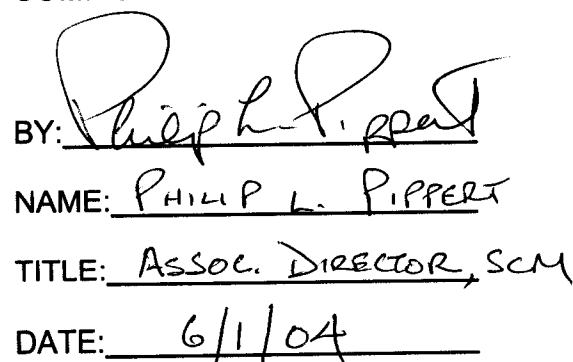 BY: Philip L. Pippert
NAME: PHILIP L. PIPPERT
TITLE: ASSOC. DIRECTOR, SCM
DATE: 6/1/04